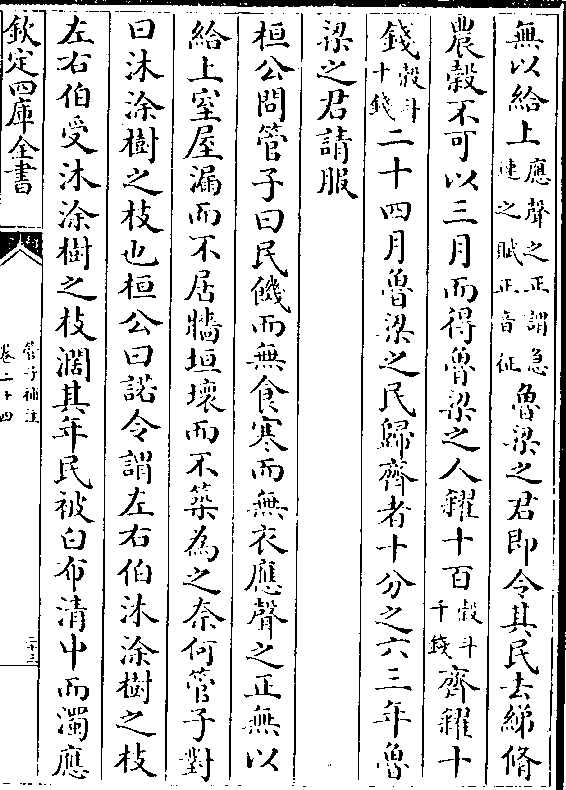 無以給上應聲之正謂急速之賦正音征魯梁之君即令其民去綈脩
農榖不可以三月而得魯梁之人糴十百榖斗千錢齊糴十
錢榖斗十錢二十四月魯梁之民歸齊者十分之六三年魯
梁之君請服
桓公問管子曰民饑而無食寒而無衣應聲之正無以
給上室屋漏而不居牆垣壞而不築為之奈何管子對
曰沐涂樹之枝也桓公曰諾令謂左右伯沐涂樹之枝
左右伯受沐涂樹之枝濶其年民被白布清中而濁應
欽定四庫全書
管子補注
卷二十四
二十三